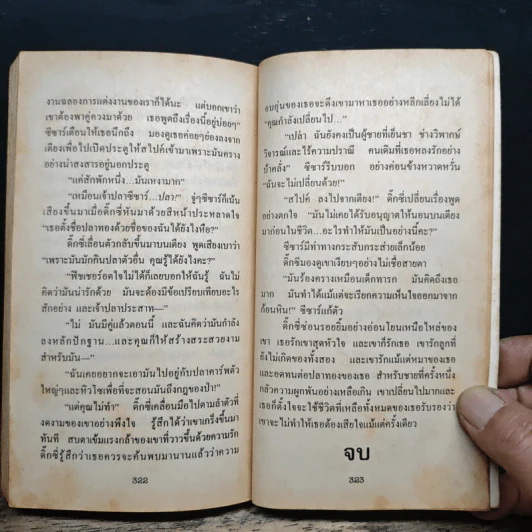 งานฉลองการแต่งงานของเราก็ได้นะ แต่บอกเขาว่า
เขาต้องพาคู่ควงมาด้วย เธอพูดถึงเรื่องนี้อยู่บ่อยๆ"
ซีซาร์เตือนให้เธอนึกถึง มองดูเธอค่อยๆย่องลงจาก
เตียงเพื่อไปเปิดประตูให้สไปค์เข้ามาเพราะมันคราง
อย่างน่าสงสารอยู่นอกประตู
"แค่สักพักหนึ่ง...มันเหงามาก"
"เหมือนเจ้าปลาซีซาร์...ปลา!" จู่ๆซีซาร์ก็เน้น
เสียงขึ้นมาเมื่อดิ๊กซี่หันมาด้วยสีหน้าประหลาดใจ
"เธอตั้งชื่อปลาทองด้วยชื่อของฉันได้ยังไงหือ?"
ดิ๊กซี่เลื่อนตัวกลับขึ้นมาบนเตียง พูดเสียงเบาว่า
"เพราะมันมักกินปลาตัวอื่น คุณรู้ได้ยังไงคะ?"
"ฟิชเชอร์อดใจไม่ได้ก็เลยบอกให้ฉันรู้ ฉันไม่
คิดว่ามันน่ารักด้วย มันจะต้องมีข้อเปรียบเทียบอะไร
สักอย่าง และเจ้าปลาประสาท—"
"ไม่ มันมีคู่แล้วตอนนี้ และฉันคิดว่ามันกำลัง
ลงหลักปักฐาน...และคุณก็ให้สร้างสระสวยงาม
สำหรับมัน—"
"ฉันเคยอยากจะเอามันไปอยู่กับปลาคาร์พตัว
ใหญ่ๆและหิวโซเพื่อที่จะสอนมันถึงกฎของป่า!"
"แต่คุณไม่ทำ" ดิ๊กซี่เคลื่อนมือไปตามลำตัวที่
งดงามของเขาอย่างพึงใจ รู้สึกได้ว่าเขาเกร็งขึ้นมา
ทันที สบตาเข้มแรงกล้าของเขาที่วาวขึ้นด้วยความรัก
ดิ๊กซี่รู้สึกว่าเธอควรจะค้นพบมานานแล้วว่าความ
322
อบอุ่นของเธอจะดึงเขามาหาเธออย่างหลีกเลี่ยงไม่ได้
"คุณกำลังเปลี่ยนไป..."
"เปล่า ฉันยังคงเป็นผู้ชายที่เย็นชา ช่างวิพากษ์
วิจารณ์และไร้ความปรานี คนเดิมที่เธอหลงรักอย่าง
บ้าคลั่ง" ซีซาร์รีบบอก อย่างค่อนข้างหวาดหวั่น
"ฉันจะไม่เปลี่ยนด้วย!"
"สไปค์ ลงไปจากเตียง!" ดิ๊กซี่เปลี่ยนเรื่องพูด
อย่างตกใจ "มันไม่เคยได้รับอนุญาตให้นอนบนเตียง
มาก่อนในชีวิต...อะไรทำให้มันเป็นอย่างนี้คะ?"
ซีซาร์มีท่าทางกระสับกระส่ายเล็กน้อย
ดิ๊กซี่มองดูเขาเงียบๆอย่างไม่เชื่อสายตา
"มันร้องครางเหมือนเด็กทารก มันคิดถึงเธอ
มาก มันทำได้แม้แต่จะเรียกความเห็นใจออกมาจาก
ก้อนหิน!" ซีซาร์แก้ตัว
ดิ๊กซี่ซ่อนรอยยิ้มอย่างอ่อนโยนเหนือไหล่ของ
เขา เธอรักเขาสุดหัวใจ และเขาก็รักเธอ เขารักลูกที่
ยังไม่เกิดของทั้งสอง และเขารักแม้แต่หมาของเธอ
และอดทนต่อปลาทองของเธอ สำหรับชายที่ครั้งหนึ่ง
กลัวความผูกพันอย่างเหลือเกิน เขาเปลี่ยนไปมากและ
เธอก็ตั้งใจจะใช้ชีวิตที่เหลือทั้งหมดของเธอรับรองว่า
เขาจะไม่ทำให้เธอต้องเสียใจแม้แต่ครั้งเดียว
จบ
323